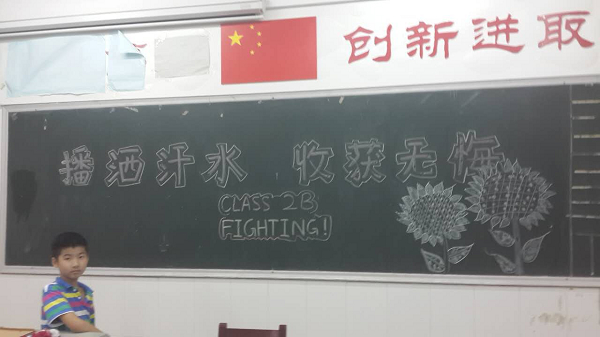 创新进取
播洒汗水 收获无悔
CLASS 2B
FIGHTING!